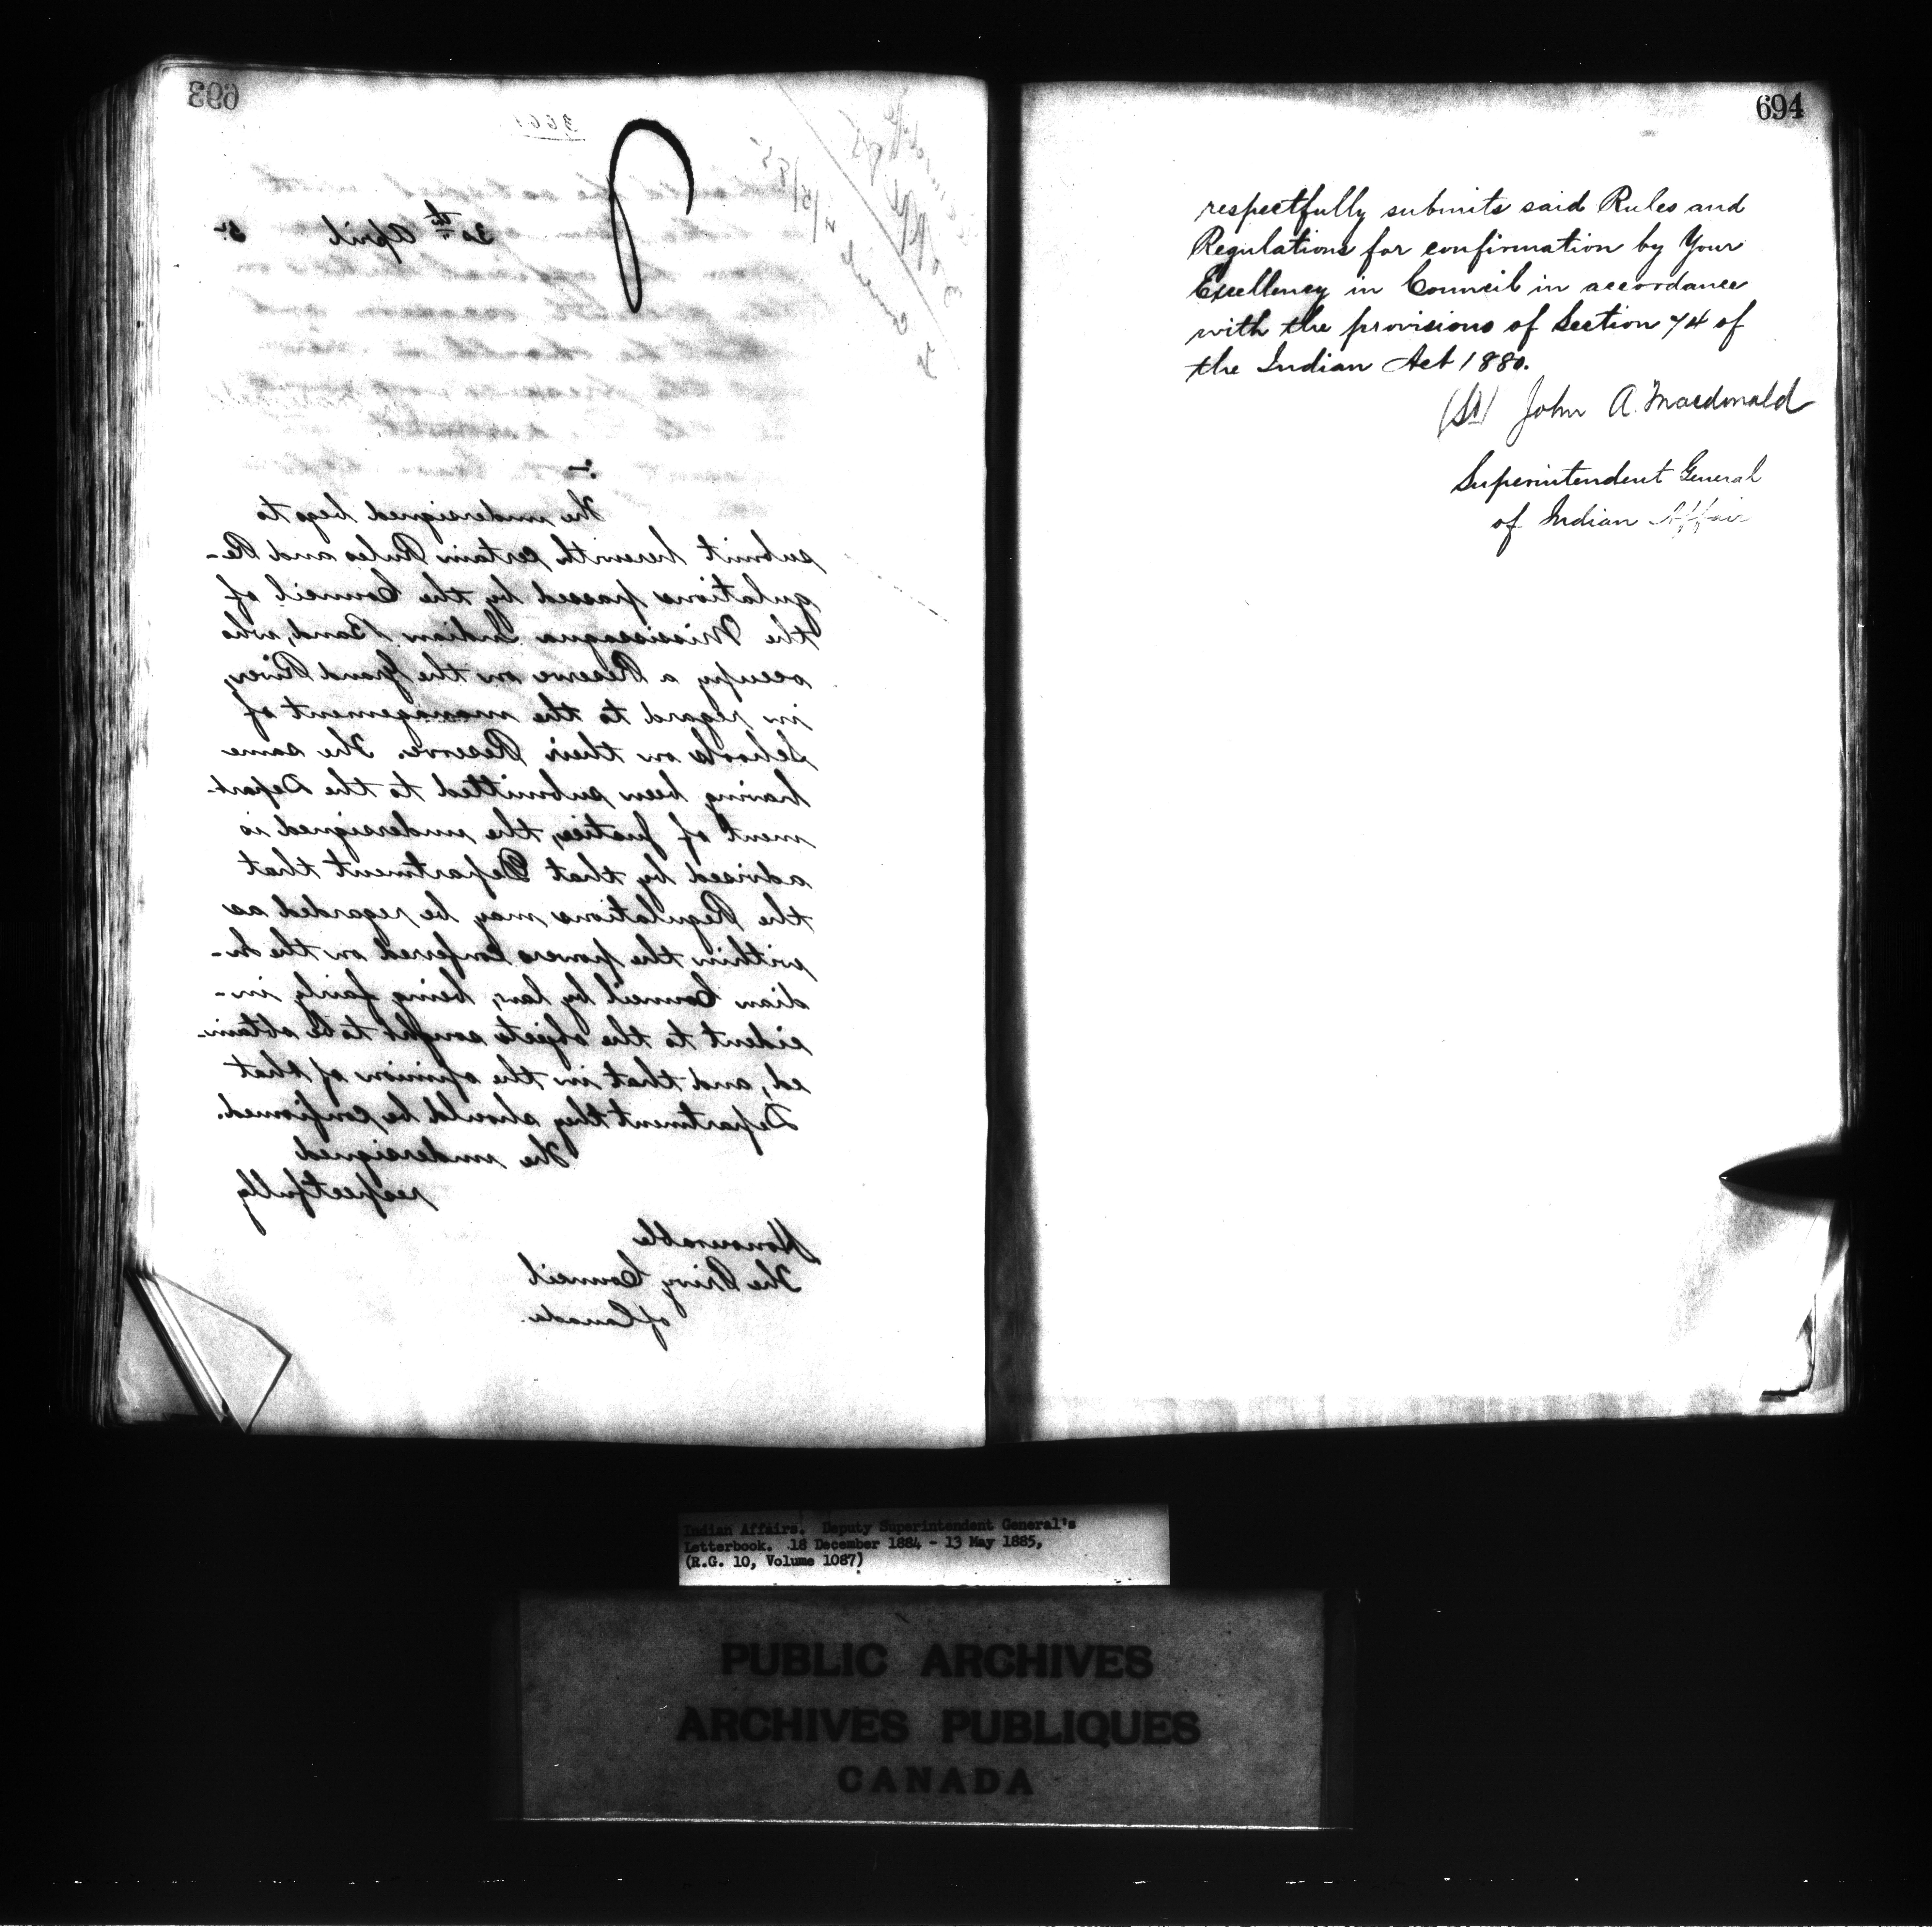 693
3661
30th April 5
:-
The undersigned begs to
submit herewith certain Rules and Re-
gulations passed by the Council of
the Mississagua Indian Band, who
occupy a Reserve on the Grand River,
in regard to the management of
Schools on their Reserve. The same
having been submitted to the Depart-
ment of Justice, the undersigned is
advised by that Department that
the Regulations may be regarded as
within the powers conferred on the In-
dian Council by law, being fairly in-
cident to the objects sought to be obtain-
ed, and that in the opinion of that
Department they should be confirmed.
The undersigned
respectfully
Honourable
The Privy Council
of Canada.
694
respectfully submits said Rules and
Regulations for confirmation by Your
Excellency in Council in accordance
with the provisions of Section 74 of
the Indian Act 1880.
(Sd) John A. Macdonald
Superintendent General
of Indian Affair
Indian Affairs. Deputy Superintendent General's
Letterbook. 18 December 1884 - 13 May 1885,
(R.G. 10, Volume 1087)
PUBLIC ARCHIVES
ARCHIVES PUBLIQUES
CANADA